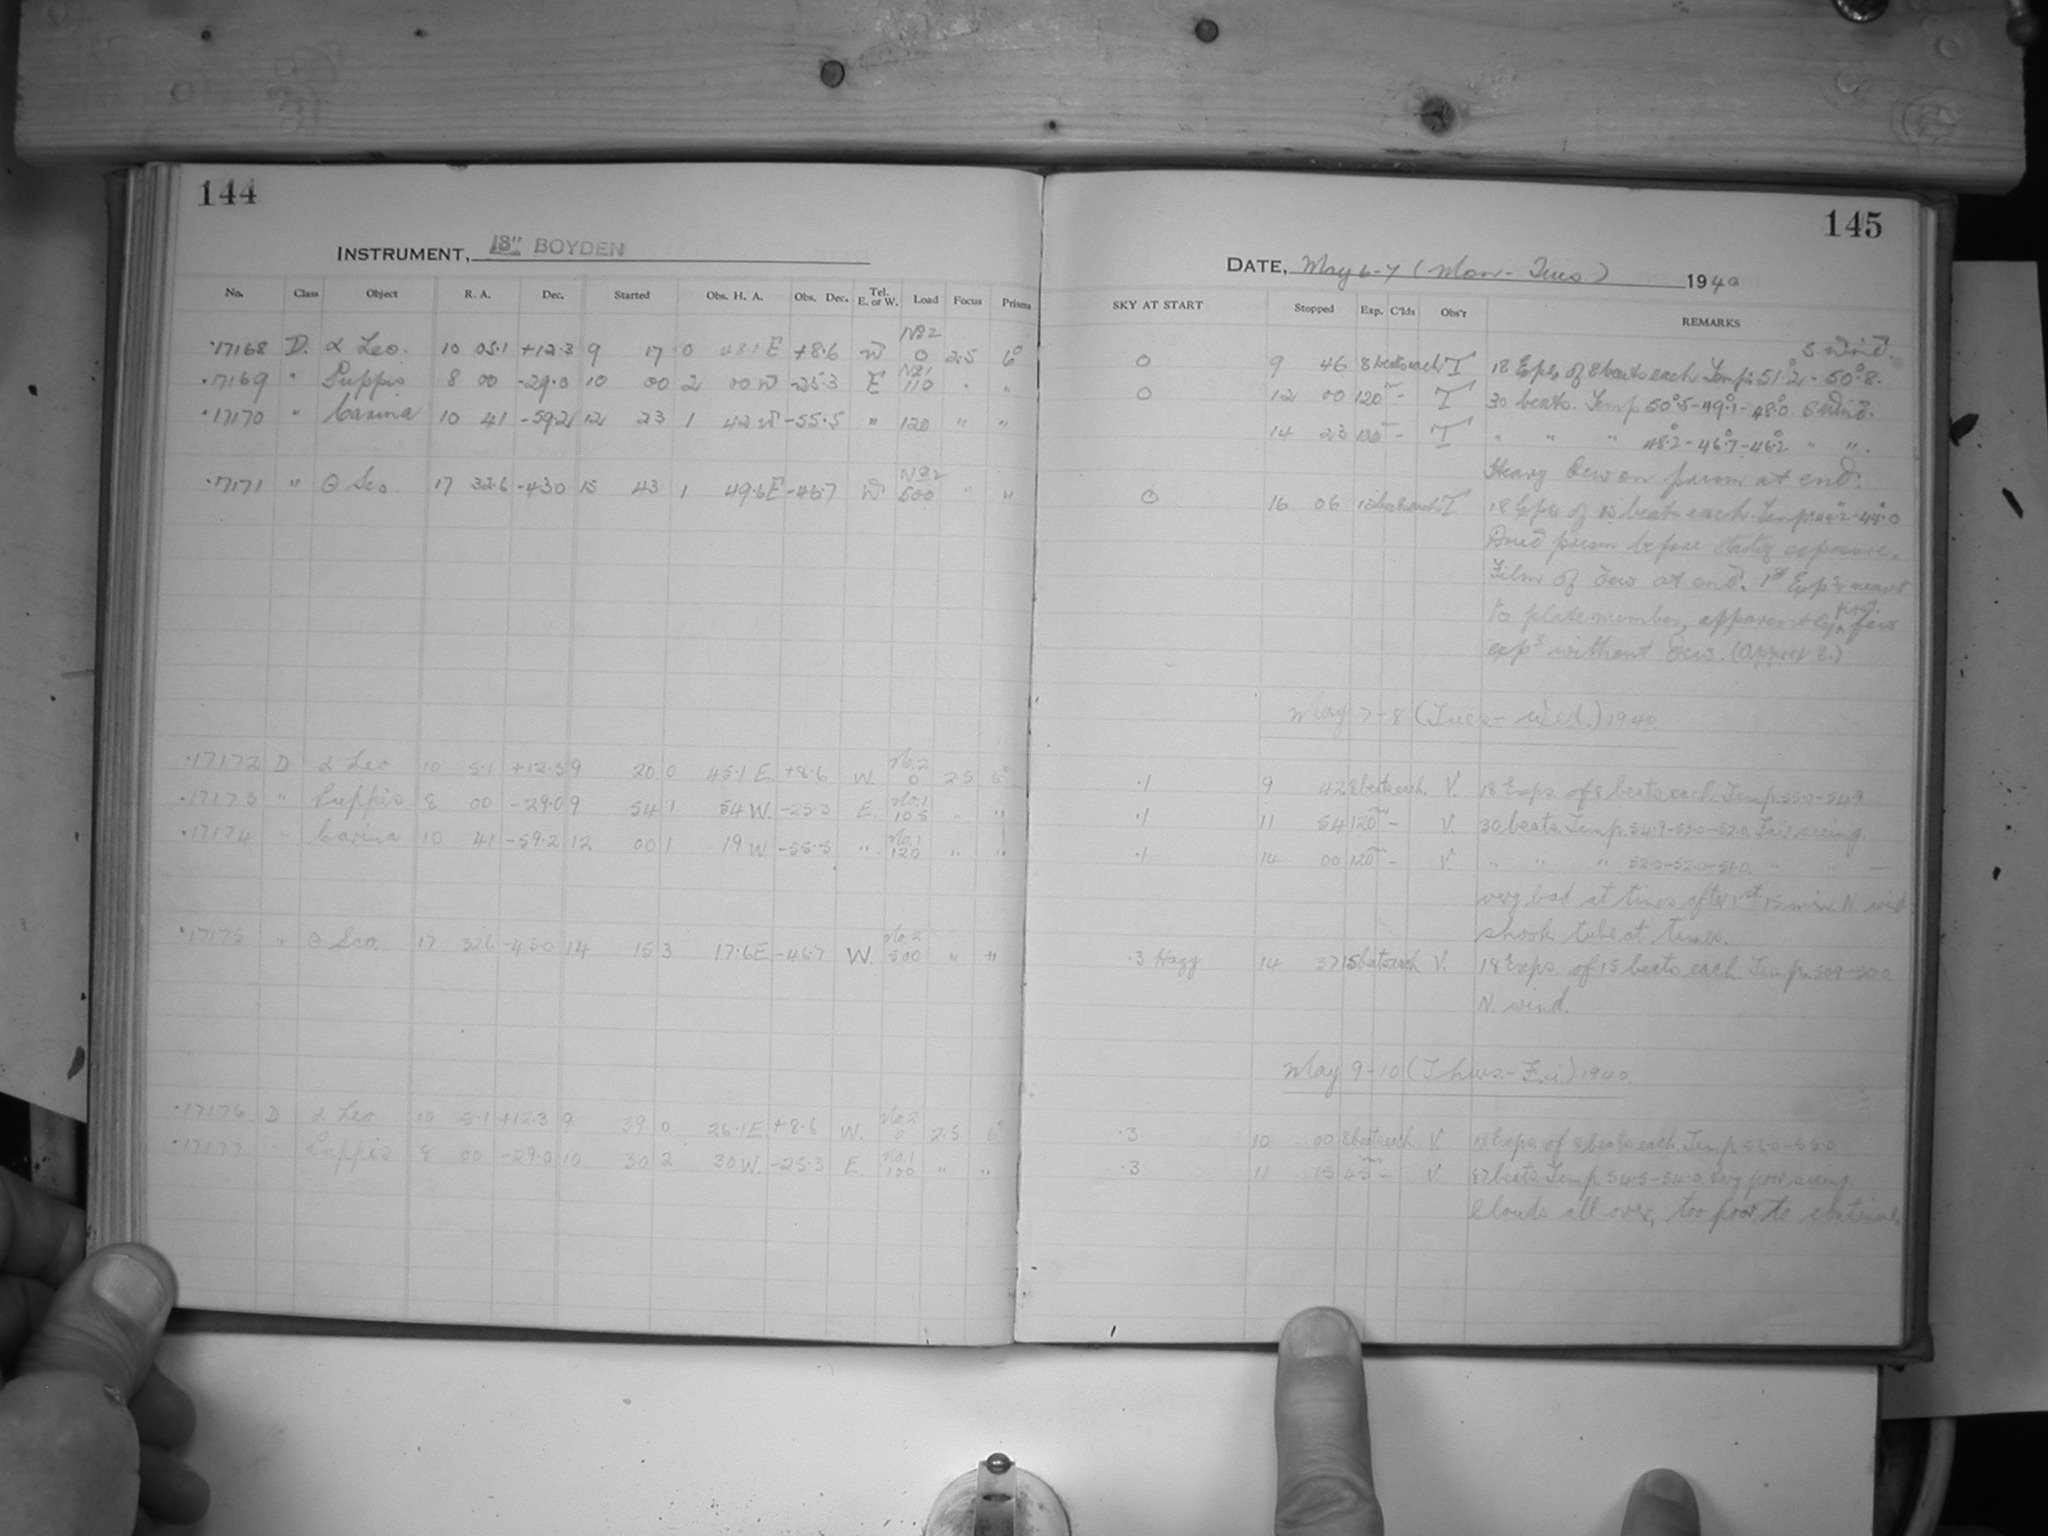 144
INSTRUMENT, 18" BOYDEN
No. Class Object R. A. Dec. Started Obs. H. A. Obs. Dec. Tel. E. or W. Load Focus Prisms
No 2
17168 D. α Leo. 10 05.1 +12.3 9 17 0 48.1 E +8.6 W 0 2.5 6°
No 1
17169 " Puppis 8 00 -29.0 10 00 2 00 W -25.3 E 110 " "
17170 " Carina 10 41 -59.2 12 23 1 42 W -55.5 " 120 " "
No 2
17171 " θ Sco. 17 32.6 -43.0 15 43 1 49.6 E -46.7 W 500 " "
No. 2
17172 D α Leo 10 5.1 +12.3 9 20 0 45.1 E. +8.6 W. 0 2.5 6°
No. 1
17173 " Puppis 8 00 -29.0 9 54 1 54 W. -25.3 E. 105 " "
No. 1
17174 " Carina 10 41 -59.2 12 00 1 19 W -55.5 " 120 " "
No. 2
17175 " θ Sco. 17 32.6 -43.0 14 15 3 17.6 E. -46.7 W. 500 " "
No. 2
17176 D α Leo 10 5.1 +12.3 9 39 0 26.1 E. +8.6 W. 0 2.5 6°
No. 1
17177 " Puppis 8 00 -29.0 10 30 2 30 W. -25.3 E. 100 " "
145
DATE, May 6-7 (Mon - Tues) 1940
SKY AT START Stopped Exp. C'lds Obs'r REMARKS
S wind.
0 9 46 8 beats each T 18 Exps. of 8 beats each Temp. 51.2 - 50.8.
0 12 00 120m - T 30 beats. Temp 50.5-49.1-48.0. S wind.
14 23 120m - T " " " 48.2-46.7-46.2 " ".
Heavy Dew on prism at end.
0 16 06 15 beats each T 18 Exps of 15 beats each. Temp. 44.2-44.0
Dried prism before exposure.
Film of dew at end. 1st Exps nearest
to plate number, apparently first few
exps without dew. (Approx 8.)
May 7-8 (Tues - Wed.) 1940
.1 9 42 8 beats each. V. 18 Exps. of 8 beats each. Temp. 55.0-54.9
.1 11 54 120m - V. 30 beats. Temp. 54.9-53.0-52.0. Fair seeing.
.1 14 00 120m - V. " " " 52.0-52.0-51.0. " " —
very bad at times after 1st 15 min. N. wind
shook tube at times.
.3 Hazy 14 37 15 beats each V. 18 Exps. of 15 beats each. Temp. 50.9-50.0
N. wind.
May 9-10 (Thurs. - Fri.) 1940.
.3 10 00 8 beats each V. 18 Exps. of 8 beats each. Temp. 56.0-55.0
.3 11 15 45m - V. beats. Temp. 54.5-54.0. Very poor seeing
Clouds all over, too poor to continue.